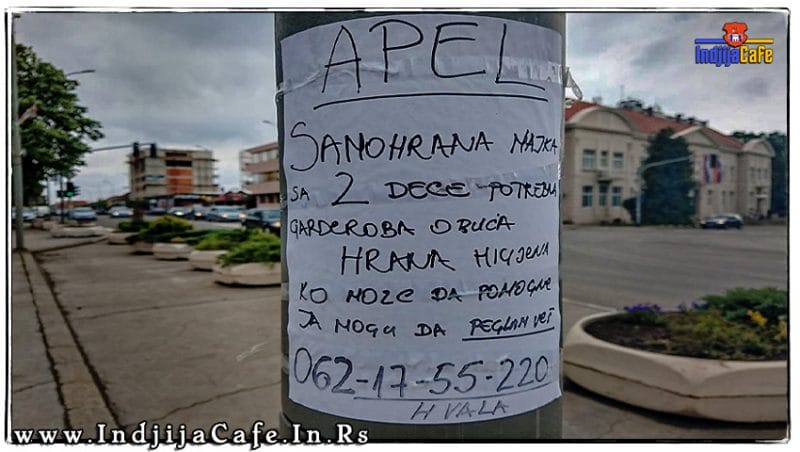 IndjijaCafe
APEL
SAMOHRANA MAJKA
SA 2 DECE POTREBNA
GARDEROBA OBUĆA
HRANA HIGIJENA
KO MOZE DA POMOGNE
JA MOGU DA PEGLAM VEŠ
062-17-55-220
HVALA
www.IndjijaCafe.In.Rs